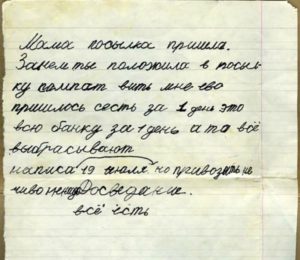 Мама посылка пришла.
Зачем ты положила в посыл-
ку компат вить мне ево
пришлось сесть за 1 день это
всю банку за 1 день а то всё
выбрасывают
написа 19 июля чо привозить не
чиво Досведание.
всё есть